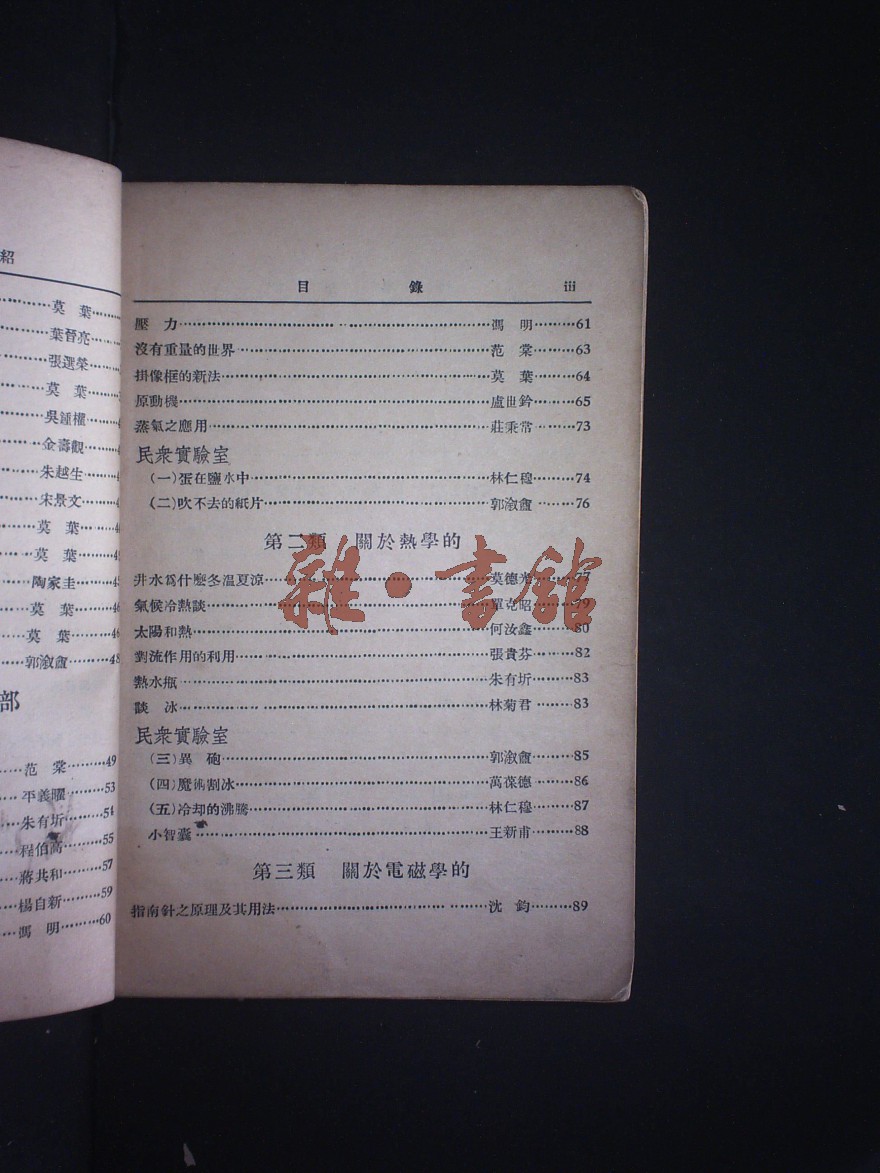 紹
莫 葉
葉晉亮
張選榮
莫 葉
吳鍾權
金壽觀
朱越生
宋景文
莫 葉
莫 葉
陶家圭
莫 葉
莫 葉
郭溆龕 48
部
范 棠 49
平義曜 53
朱有圻 54
程伯高 55
蔣共和 57
楊自新 59
馮 明 60
目 錄 iii
壓 力 馮 明 61
沒有重量的世界 范 棠 63
掛像框的新法 莫 葉 64
原動機 盧世鈐 65
蒸氣之應用 莊秉常 73
民衆實驗室
(一)蛋在鹽水中 林仁穆 74
(二)吹不去的紙片 郭溆龕 76
第二類 關於熱學的
井水爲什麼冬溫夏涼 莫德光 77
氣候冷熱談 單克昭 79
太陽和熱 何汝鑫 80
對流作用的利用 張貴芬 82
熱水瓶 朱有圻 83
談 冰 林菊君 83
民衆實驗室
(三)異 砲 郭溆龕 85
(四)魔術割冰 萬葆德 86
(五)冷却的沸騰 林仁穆 87
小智囊 王新甫 88
第三類 關於電磁學的
指南針之原理及其用法 沈 鈞 89
雜·書館